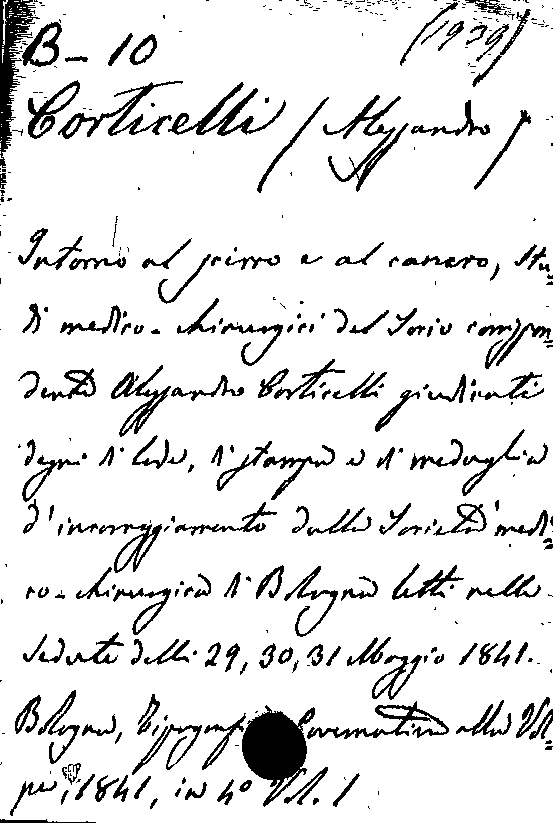 B-10 (1939)
Corticelli (Alessandro)
Intorno al scirro e al cancro, Stu=
di medico-chirurgici del Socio corrispon=
dente Alessandro Corticelli giudicati
degni di lode, di stampa e di medaglia
d'incoraggiamento dalla Società medi=
co-chirurgica di Bologna letti nelle
sedute delli 29, 30, 31 Maggio 1841.
Bologna, Governativa alla Vol=
pe, 1841, in 4° Vol. 1